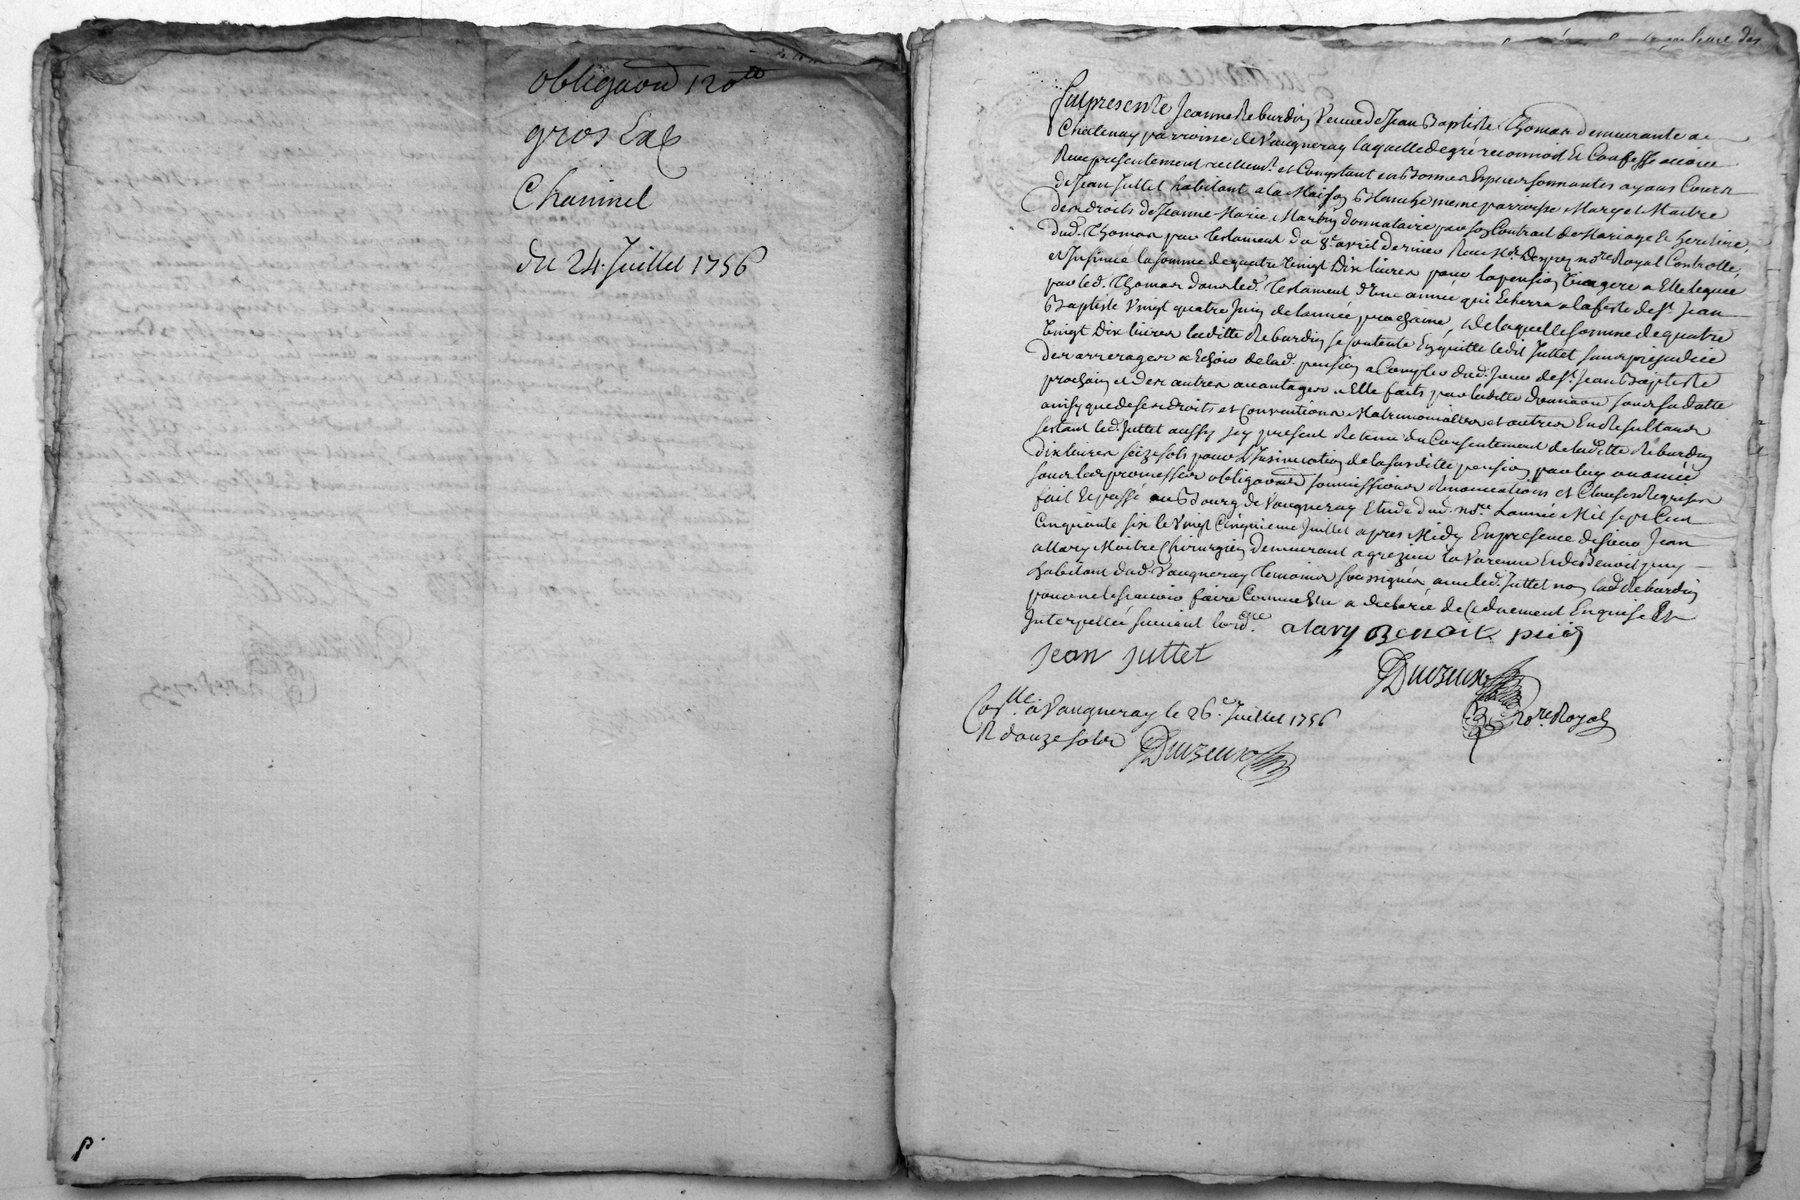 obligaon 120ᵗᵗ
gros Lac
Chaninel
du 24. Juillet 1756
fut presente Jeanne Reburdin Veuve de Jean Baptiste Thomas demeurante a
Chatenay parroisse de Vaugneray laquelle de gré reconnoit Et Confesse avoir
Receu presentement reellemᵗ. et Comptant en Bonnes Espices sonnantes ayans Cours
de Jean Juttet habitant a la Maison Blanche meme parroisse Mary et Maitre
des droits de Jeanne Marie Martin donnataire par son Contrat de Mariage Et heritiere
dud. Thomas par testament du 8ᵉ avril dernier Receu Mᵉ Desprez noʳᵉ Royal Controllé,
et Insinué la somme de quatre Vingt Dix livres pour la pension Viagere a Elle leguée
par led. Thomas dans led. testament d'une année qui Echerra a la feste de Sᵗ. Jean
Baptiste Vingt quatre Juin de lannée prochaine, de laquelle somme de quatre
Vingt Dix livres laditte Reburdin se contente En quitte ledit Juttet sans prejudice
des arrerages a Echoir de lad. pension a Compter dud. Jour de Sᵗ. Jean Baptiste
prochain et des autres avantages a Elle faits par laditte donnaon sous sa datte
ainsy que de ses droits et Conventions Matrimonialles et autres En Resultans
sestant led. Juttet aussy icy present Retenu du Consentement de laditte Reburdin
dix livres seize sols pour L'Insinuation de la susditte pension par luy avancée
sous les promesses obligaons soumissions Renonciations et Clauses Requises
fait Et passé au Bourg de Vaugneray Etude dud. noʳᵉ Lannée Mil sept Cent
Cinquante six le Vingt Cinquieme Juillet apres Midy En presence de sieur Jean
allary Maitre Chirurgien demeurant a grezieu la Varenne Et de Benoit puy
habitant dud. Vaugneray temoins soussignés avec led. Juttet non lad. Reburdin
pour ne le scavoir faire Comme Elle a declarée de ce duement Enquise Et
Interpellée suivant lordᶜᵉ
alary Benoit puis
Jean Juttet
noʳᵉ Royal
Conᵗˡˡᵉ a Vaugneray le 26ᵉ. Juillet 1756
R douze sols